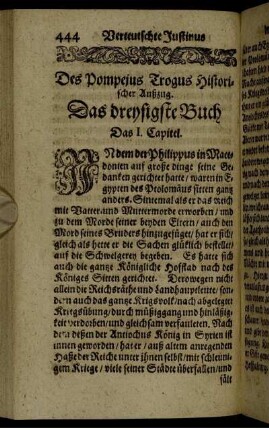 444 Verteutschte Justinus
Des Pompejus Trogus Histori-
scher Außzug.
Das dreysigste Buch
Das I. Capitel.
INdem der Philippus in Mace-
donien auf große dinge seine Ge-
danken gerichtet hatte / waren in E-
gypten des Ptolomäus sitten gantz
anders. Sintemal als er das Reich
mit Vatter und Muttermorde erworben / und
zu dem Morde seiner beyden Eltern / auch den
Mord seines Bruders hinzugefüget / hat er sich /
gleich als hette er die Sachen glücklich bestellet /
auf die Schwelgerey begeben. Es hatte sich
auch die gantze Königliche Hofstad nach des
Königes Sitten gerichtet. Derowegen nicht
allein die Reichsräthe und Landhauptleute / son-
dern auch das gantze Krigsvolk / nach abgelegter
Kriegsübung / durch müßiggang und hinläßig-
keit verdorben / und gleichsam verfauleten. Nach
dem dessen der Antiochus König in Syrien ist
innen geworden / hat er / auß altem anregenden
Haße der Reiche unter ihnen selbst / mit schleuni-
gem Kriege / viele seiner Städe überfallen / und